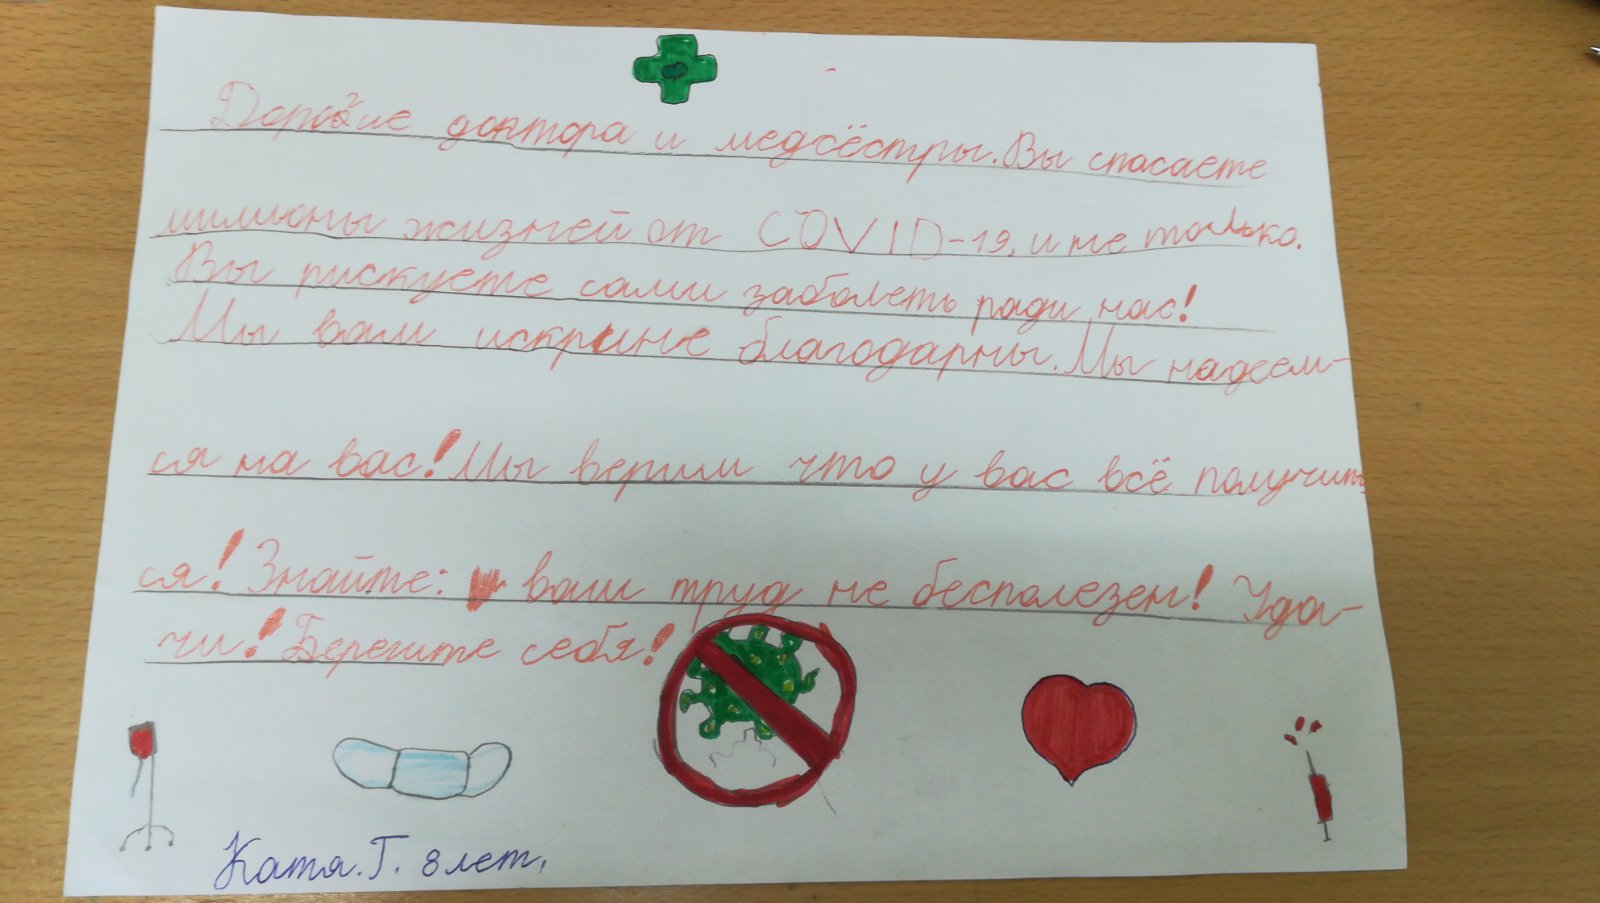 Дорогие доктора и медсёстры. Вы спасаете
милионы жизней от COVID-19, и не только.
Вы рискуете сами заболеть ради нас!
Мы вам искрине благодарны. Мы надеем-
ся на вас! Мы верим что у вас всё получить
ся! Знайте: ваш труд не бесполезен! Уда-
чи! Берегите себя!
Катя. Г. 8 лет.